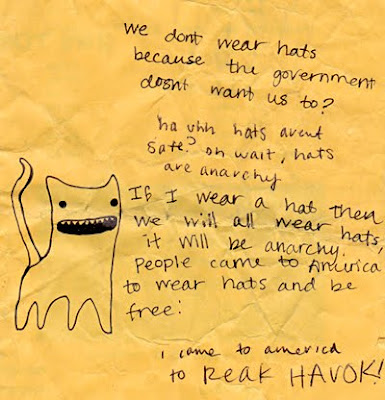 we dont wear hats
because the government
dosnt want us to?
ha uhh hats arent
safe? oh wait, hats
are anarchy
If I wear a hat then
we will all wear hats,
it will be anarchy.
People came to America
to wear hats and be
free:
i came to america
to Reak HAVOK!